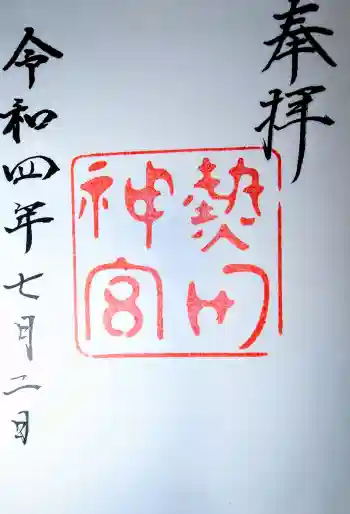 奉拝
神宮
令和四年七月二日